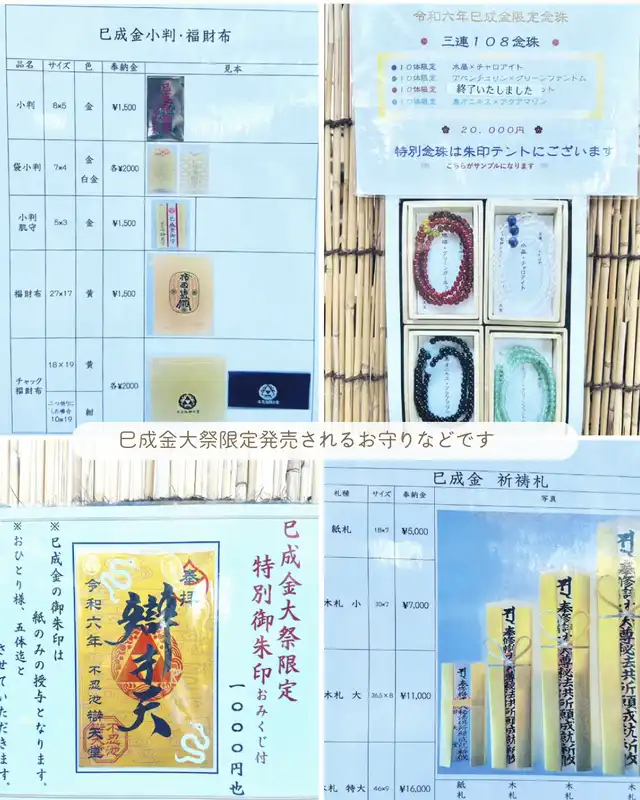 巳成金小判・福財布
品名 サイズ 色 奉納金 見本
小判 8×5 金 ¥1,500
袋小判 7×4 金 白金 各¥2000
小判肌守 5×3 金 ¥1,500
福財布 27×17 黄 ¥1,500
チャック福財布 18×19 黄 各¥2000
二つ折りにした場合 10×19 紺
令和六年巳成金限定念珠
三連108念珠
●10体限定 水晶×チャロアイト
●10体限定 アベンチュリン×グリーンファントム
●10体限定 終了いたしました
●10体限定 黒オニキス×アクアマリン
20,000円
特別念珠は朱印テントにございます
こちらがサンプルになります
水晶・チャロアイト
巳成金大祭限定発売されるお守りなどです
巳成金大祭限定
特別御朱印おみくじ付
一〇〇〇円也
奉拝
辯才天
令和六年
不忍池辯天堂
※巳成金の御朱印は
紙のみの授与となります。
※おひとり様、五体迄と
させていただきます。
巳成金 祈祷札
札種 サイズ 奉納金 写真
紙札 18×7 ¥5,000
木札 小 30×7 ¥7,000
木札 大 36.5×8 ¥11,000
木札 特大 46×9 ¥16,000
紙札 木札 木札 木札